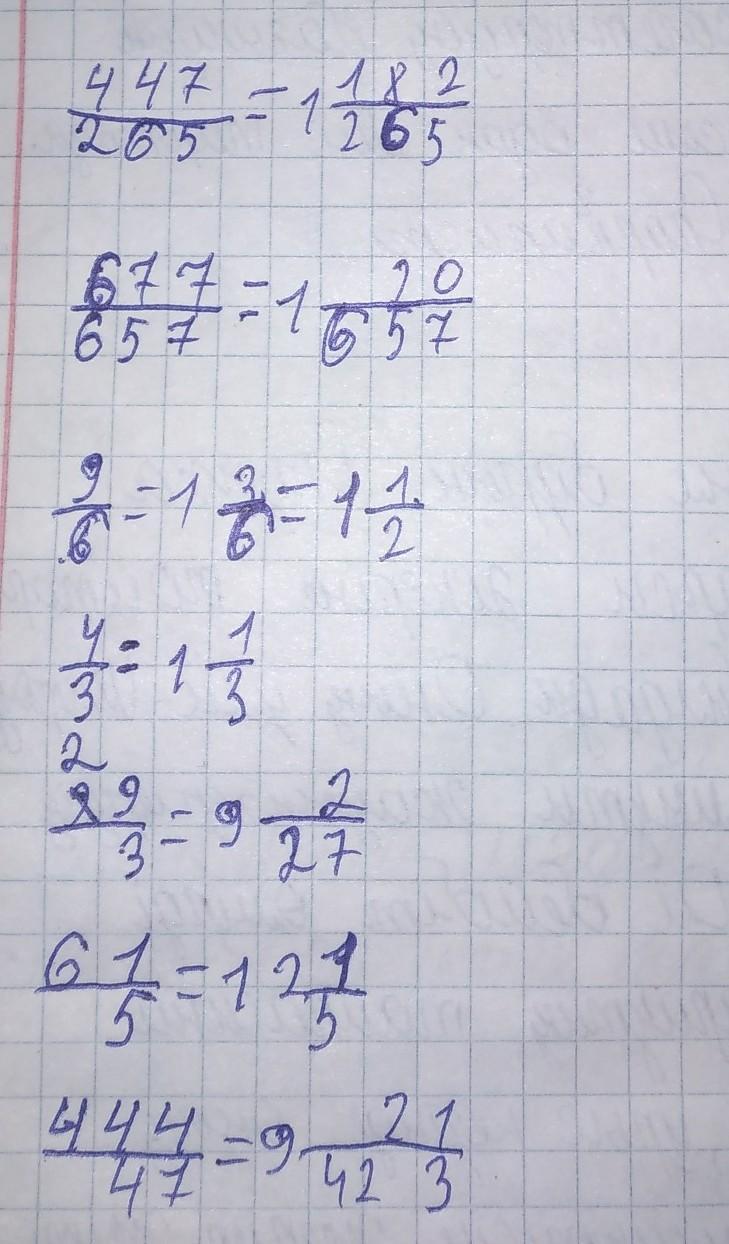 447/265 = 1 182/265
677/657 = 1 20/657
9/6 = 1 3/6 = 1 1/2
4/3 = 1 1/3
2
9/3 = 9 2/27
61/5 = 12 1/5
444/47 = 9 21/423